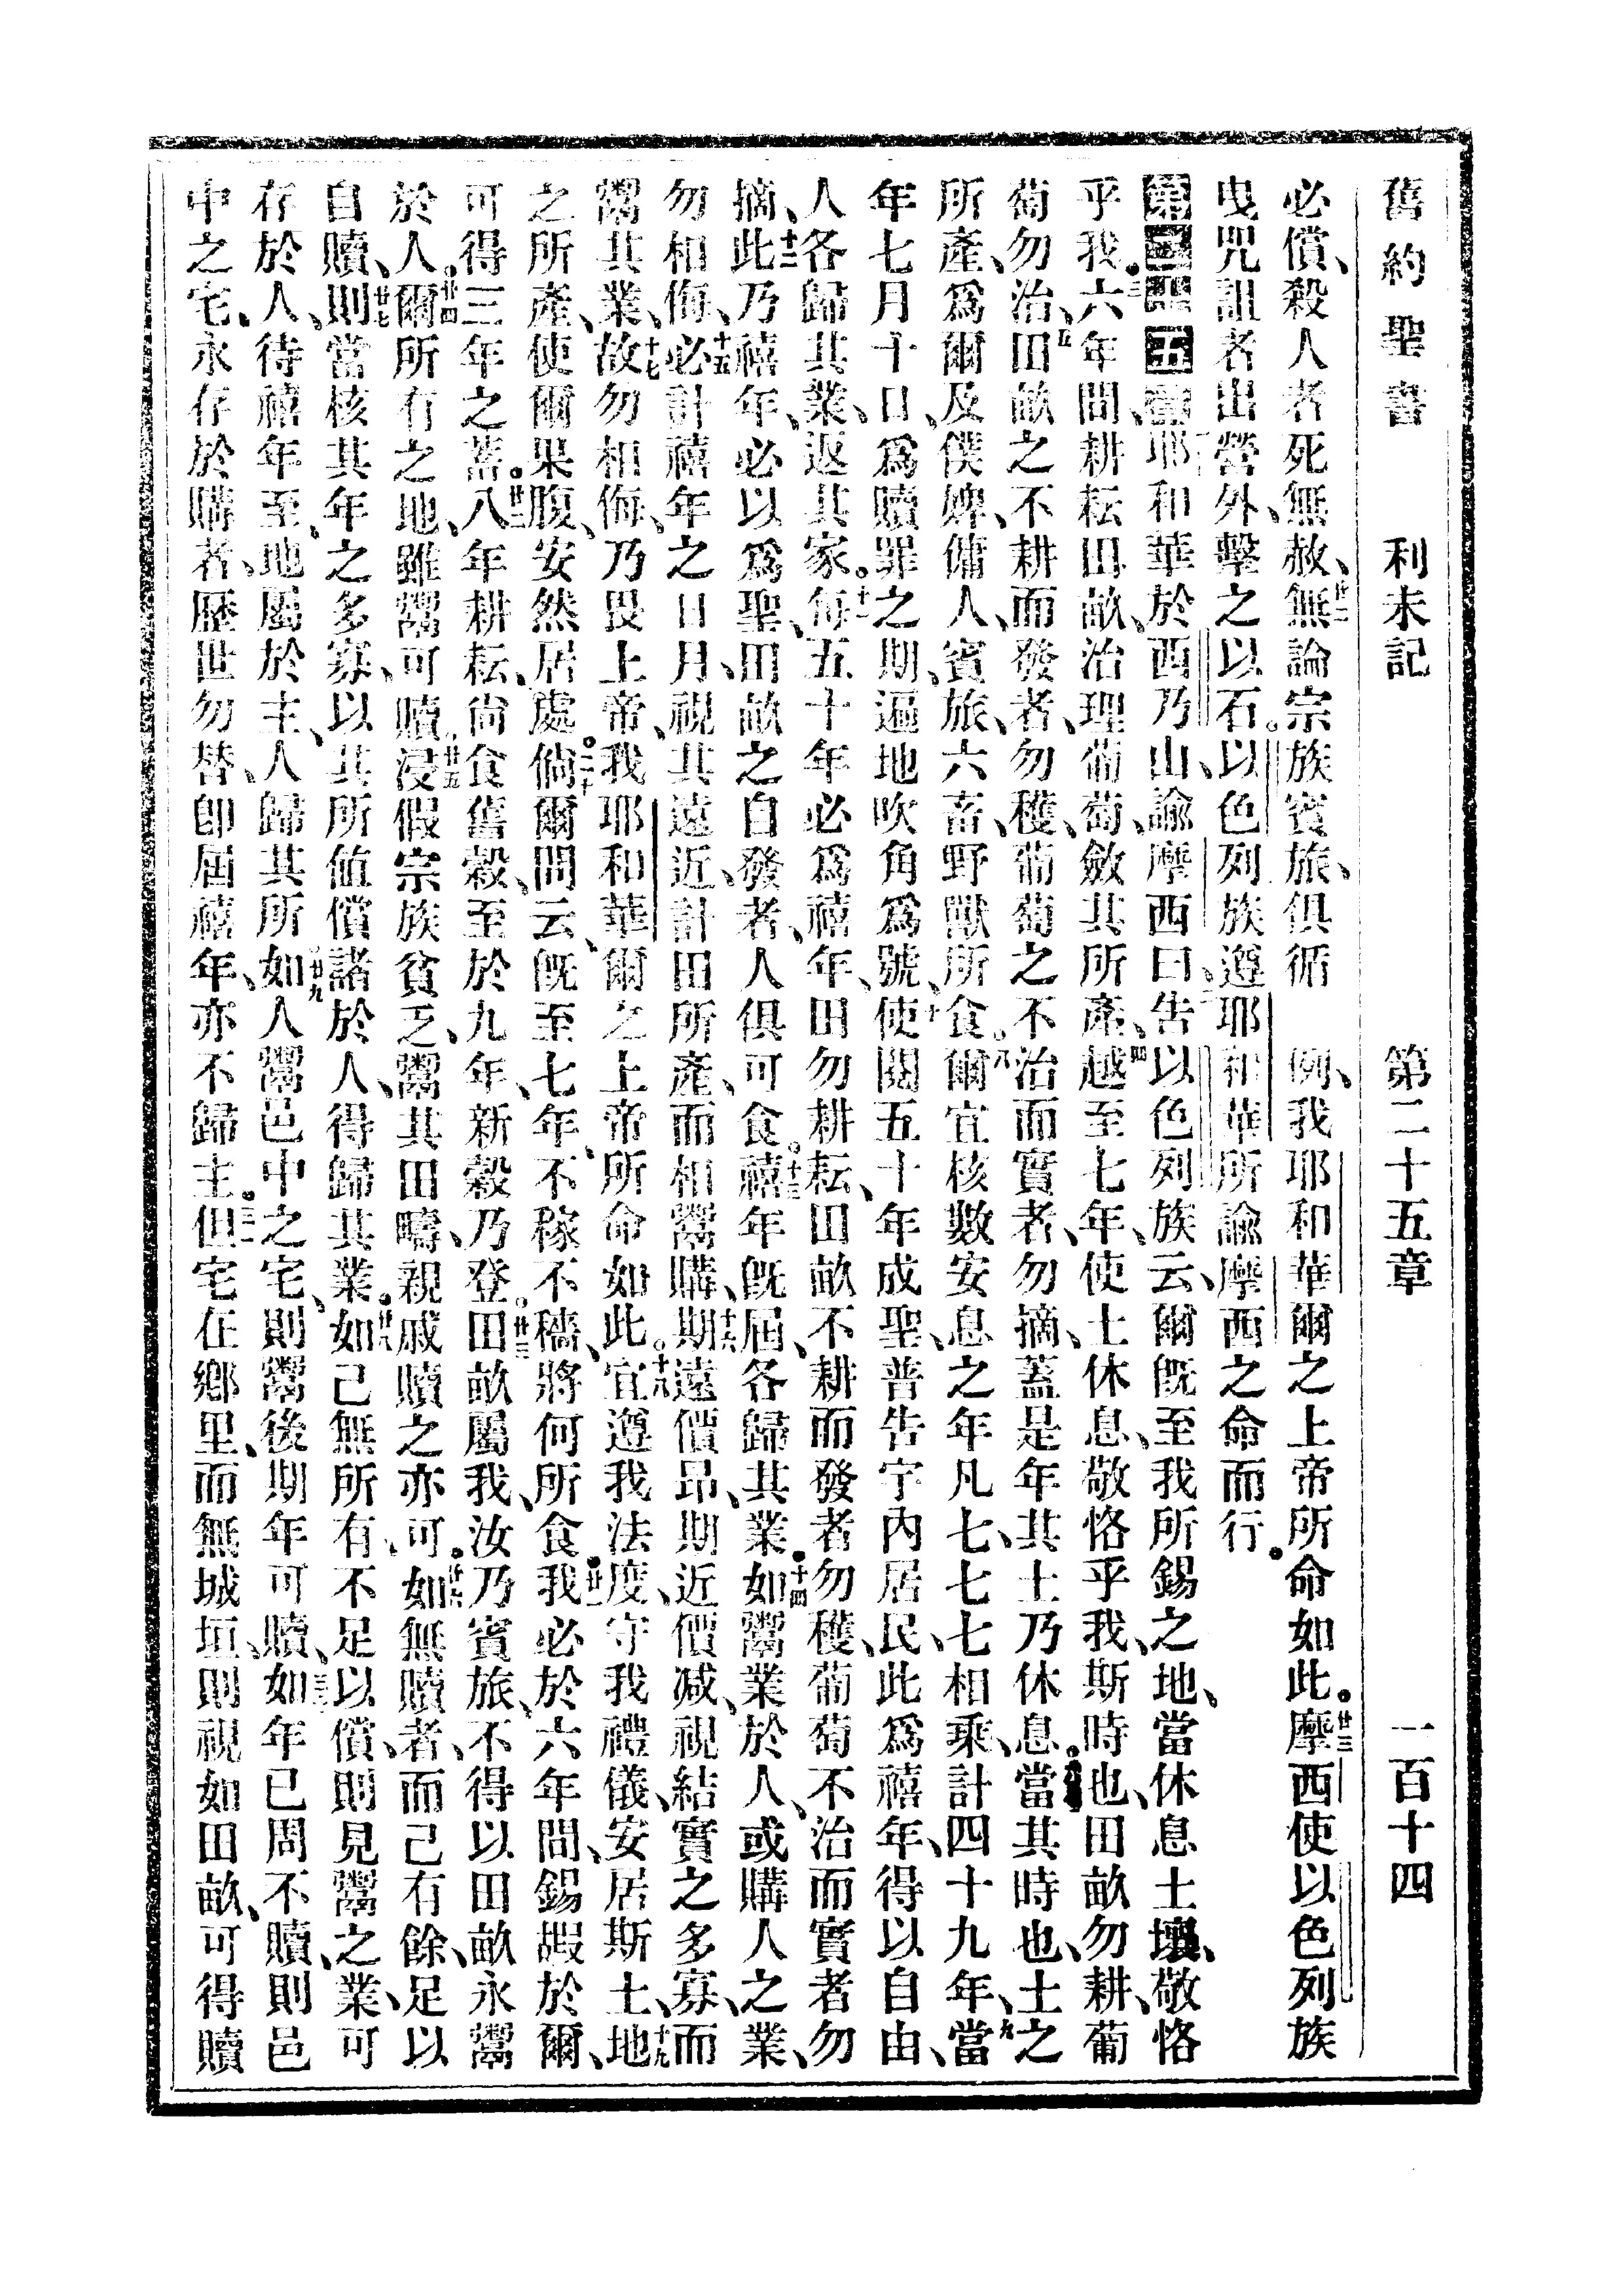 舊約聖書　利未記　第二十五章　一百十四
必償、殺人者死無赦、廿二無論宗族賓旅、俱循例、我耶和華爾之上帝所命如此。廿三摩西使以色列族
曳咒詛者出營外、擊之以石。以色列族遵耶和華所諭摩西之命而行。
第二十五章 耶和華於西乃山、諭摩西曰、二告以色列族云、爾旣至我所錫之地、當休息土壤、敬恪
乎我。三六年間、耕耘田畝、治理葡萄、斂其所產、四越至七年、使土休息、敬恪乎我、斯時也、田畝勿耕、葡
萄勿治、五田畝之不耕而發者、勿穫、葡萄之不治而實者、勿摘、蓋是年其土乃休息。當其時也、土之
所產、爲爾及僕婢、傭人、賓旅、六畜、野獸所食。八爾宜核數安息之年、凡七、七七相乘、計四十九年、九當
年七月十日、爲贖罪之期、遍地吹角爲號、十使閱五十年成聖、普告宇內居民、此爲禧年、得以自由、
人各歸其業、返其家。十一每五十年必爲禧年、田勿耕耘、田畝不耕而發者勿穫、葡萄不治而實者勿
摘、十二此乃禧年、必以爲聖、田畝之自發者、人俱可食。十三禧年旣屆、各歸其業。十四如鬻業於人、或購人之業、
勿相侮、十五必計禧年之日月、視其遠近、計田所產、而相鬻購、十六期遠價昂、期近價减、視結實之多寡、而
鬻其業、十七故勿相侮、乃畏上帝、我耶和華爾之上帝、所命如此。十八宜遵我法度、守我禮儀、安居斯土、十九地
之所產、使爾果腹、安然居處。二十倘爾問云、旣至七年、不稼不穡、將何所食。廿一我必於六年間、錫嘏於爾、
可得三年之蓄。廿二八年耕耘、尙食舊穀、至於九年、新穀乃登。廿三田畝屬我、汝乃賓旅、不得以田畝永鬻
於人。廿四爾所有之地、雖鬻可贖。廿五浸假宗族貧乏、鬻其田疇、親戚贖之亦可。廿六如無贖者、而己有餘、足以
自贖、廿七則當核其年之多寡、以其所值償諸於人、得歸其業。廿八如己無所有、不足以償、則見鬻之業、可
存於人、待禧年至、地屬於主、人歸其所。廿九如人鬻邑中之宅、則鬻後期年可贖、三十如年已周不贖、則邑
中之宅、永存於購者、歷世勿替、卽屆禧年、亦不歸主。三一但宅在鄉里、而無城垣、則視如田畝、可得贖